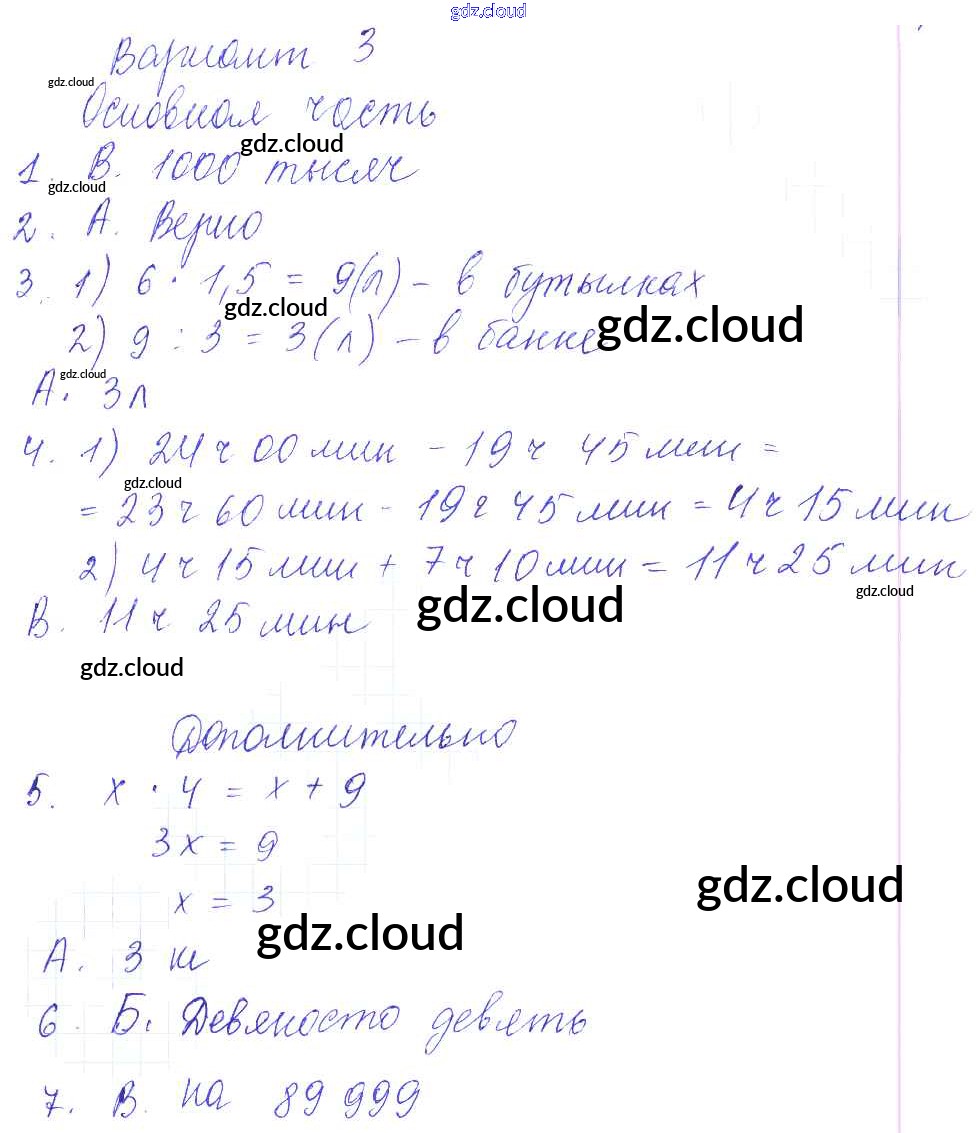 gdz.cloud
Вариант 3
gdz.cloud
Основная часть
gdz.cloud
1. В. 1000 тысяч
gdz.cloud
2. А. Верно
3. 1) 6 · 1,5 = 9(л) – в бутылках
gdz.cloud
gdz.cloud
2) 9 : 3 = 3(л) – в банке
gdz.cloud
А. 3л
4. 1) 24 ч 00 мин – 19 ч 45 мин =
gdz.cloud
= 23 ч 60 мин – 19 ч 45 мин = 4 ч 15 мин
2) 4 ч 15 мин + 7 ч 10 мин = 11 ч 25 мин
gdz.cloud
gdz.cloud
В. 11 ч 25 мин
gdz.cloud
Дополнительно
5. х · 4 = х + 9
3х = 9
gdz.cloud
х = 3
gdz.cloud
А. 3 кг
6. Б. Девяносто девять
7. В. на 89 999